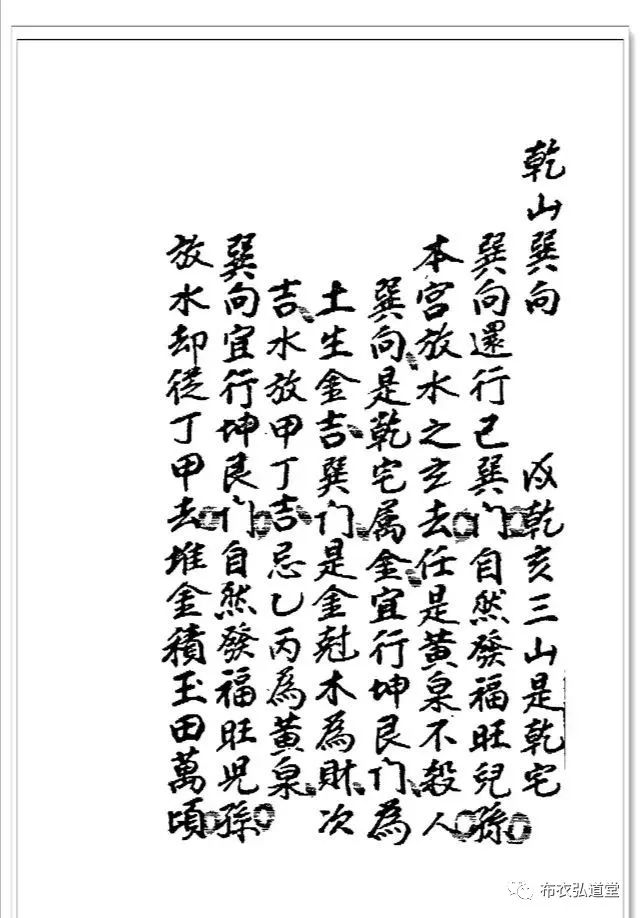 乾山巽向　戌乾亥三山是乾宅
巽向還行己巽门自然發福旺兒孫
本宮放水之玄去任是黃泉不殺人
巽向是乾宅属金宜行坤艮门為
土生金吉巽门是金尅木為財次
吉水放甲丁吉忌乙丙為黃泉
巽向宜行坤艮门自然發福旺児孫
放水却從丁甲去堆金積玉田萬頃
布衣弘道堂